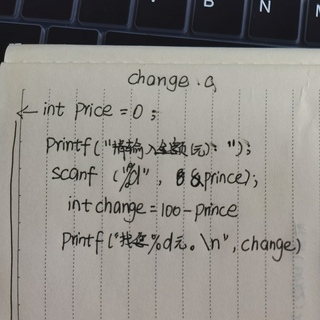 change.c
int price = 0;
printf("请输入金额(元): ");
scanf ("%d", &prince);
int change = 100 - prince
printf("找您%d元。\n", change)